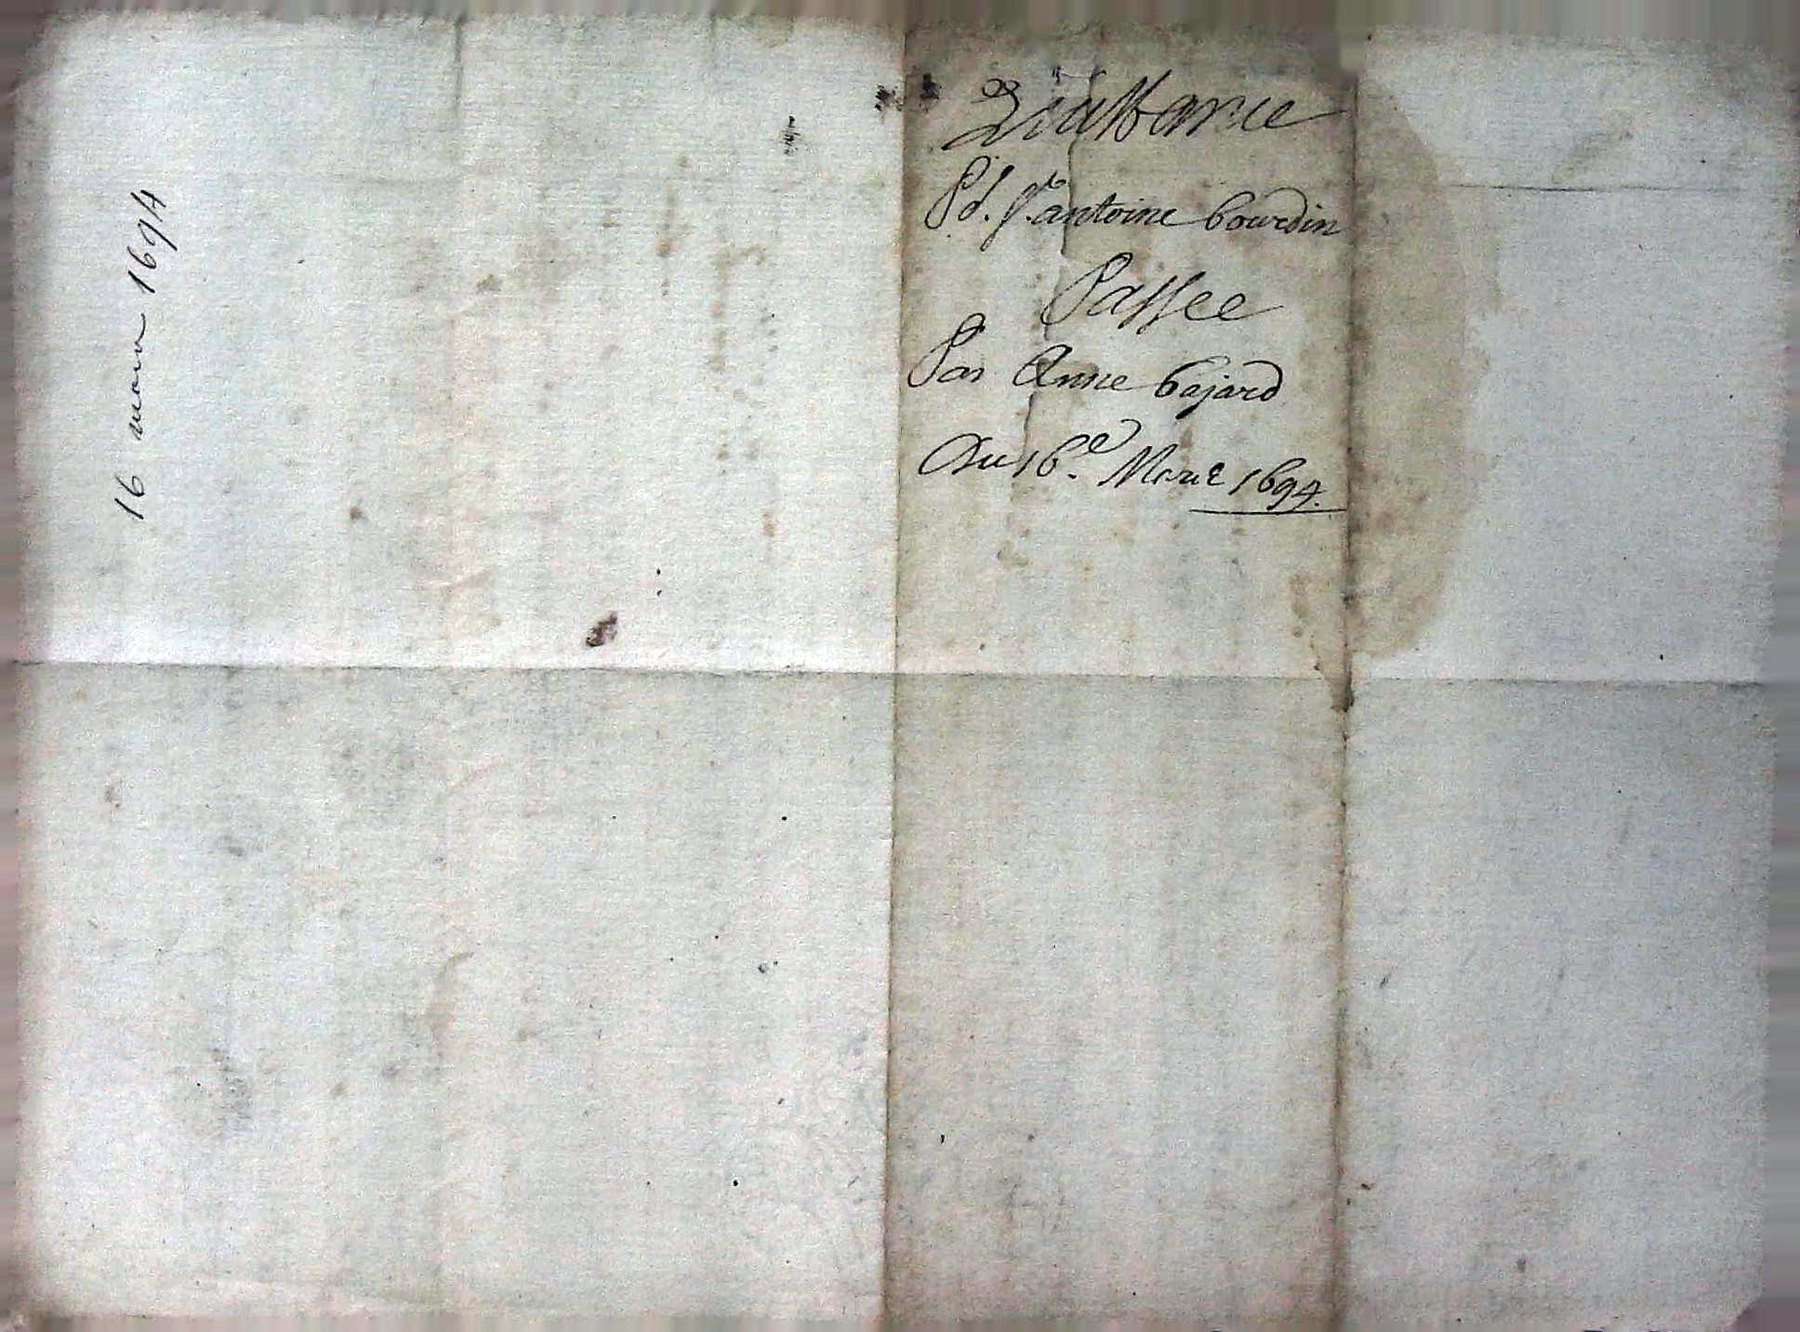 16 mars 1694
Quittance
Pd. Sr. antoine bourdin
Passee
Par Anne bajard
Du 16e. Mars 1694.